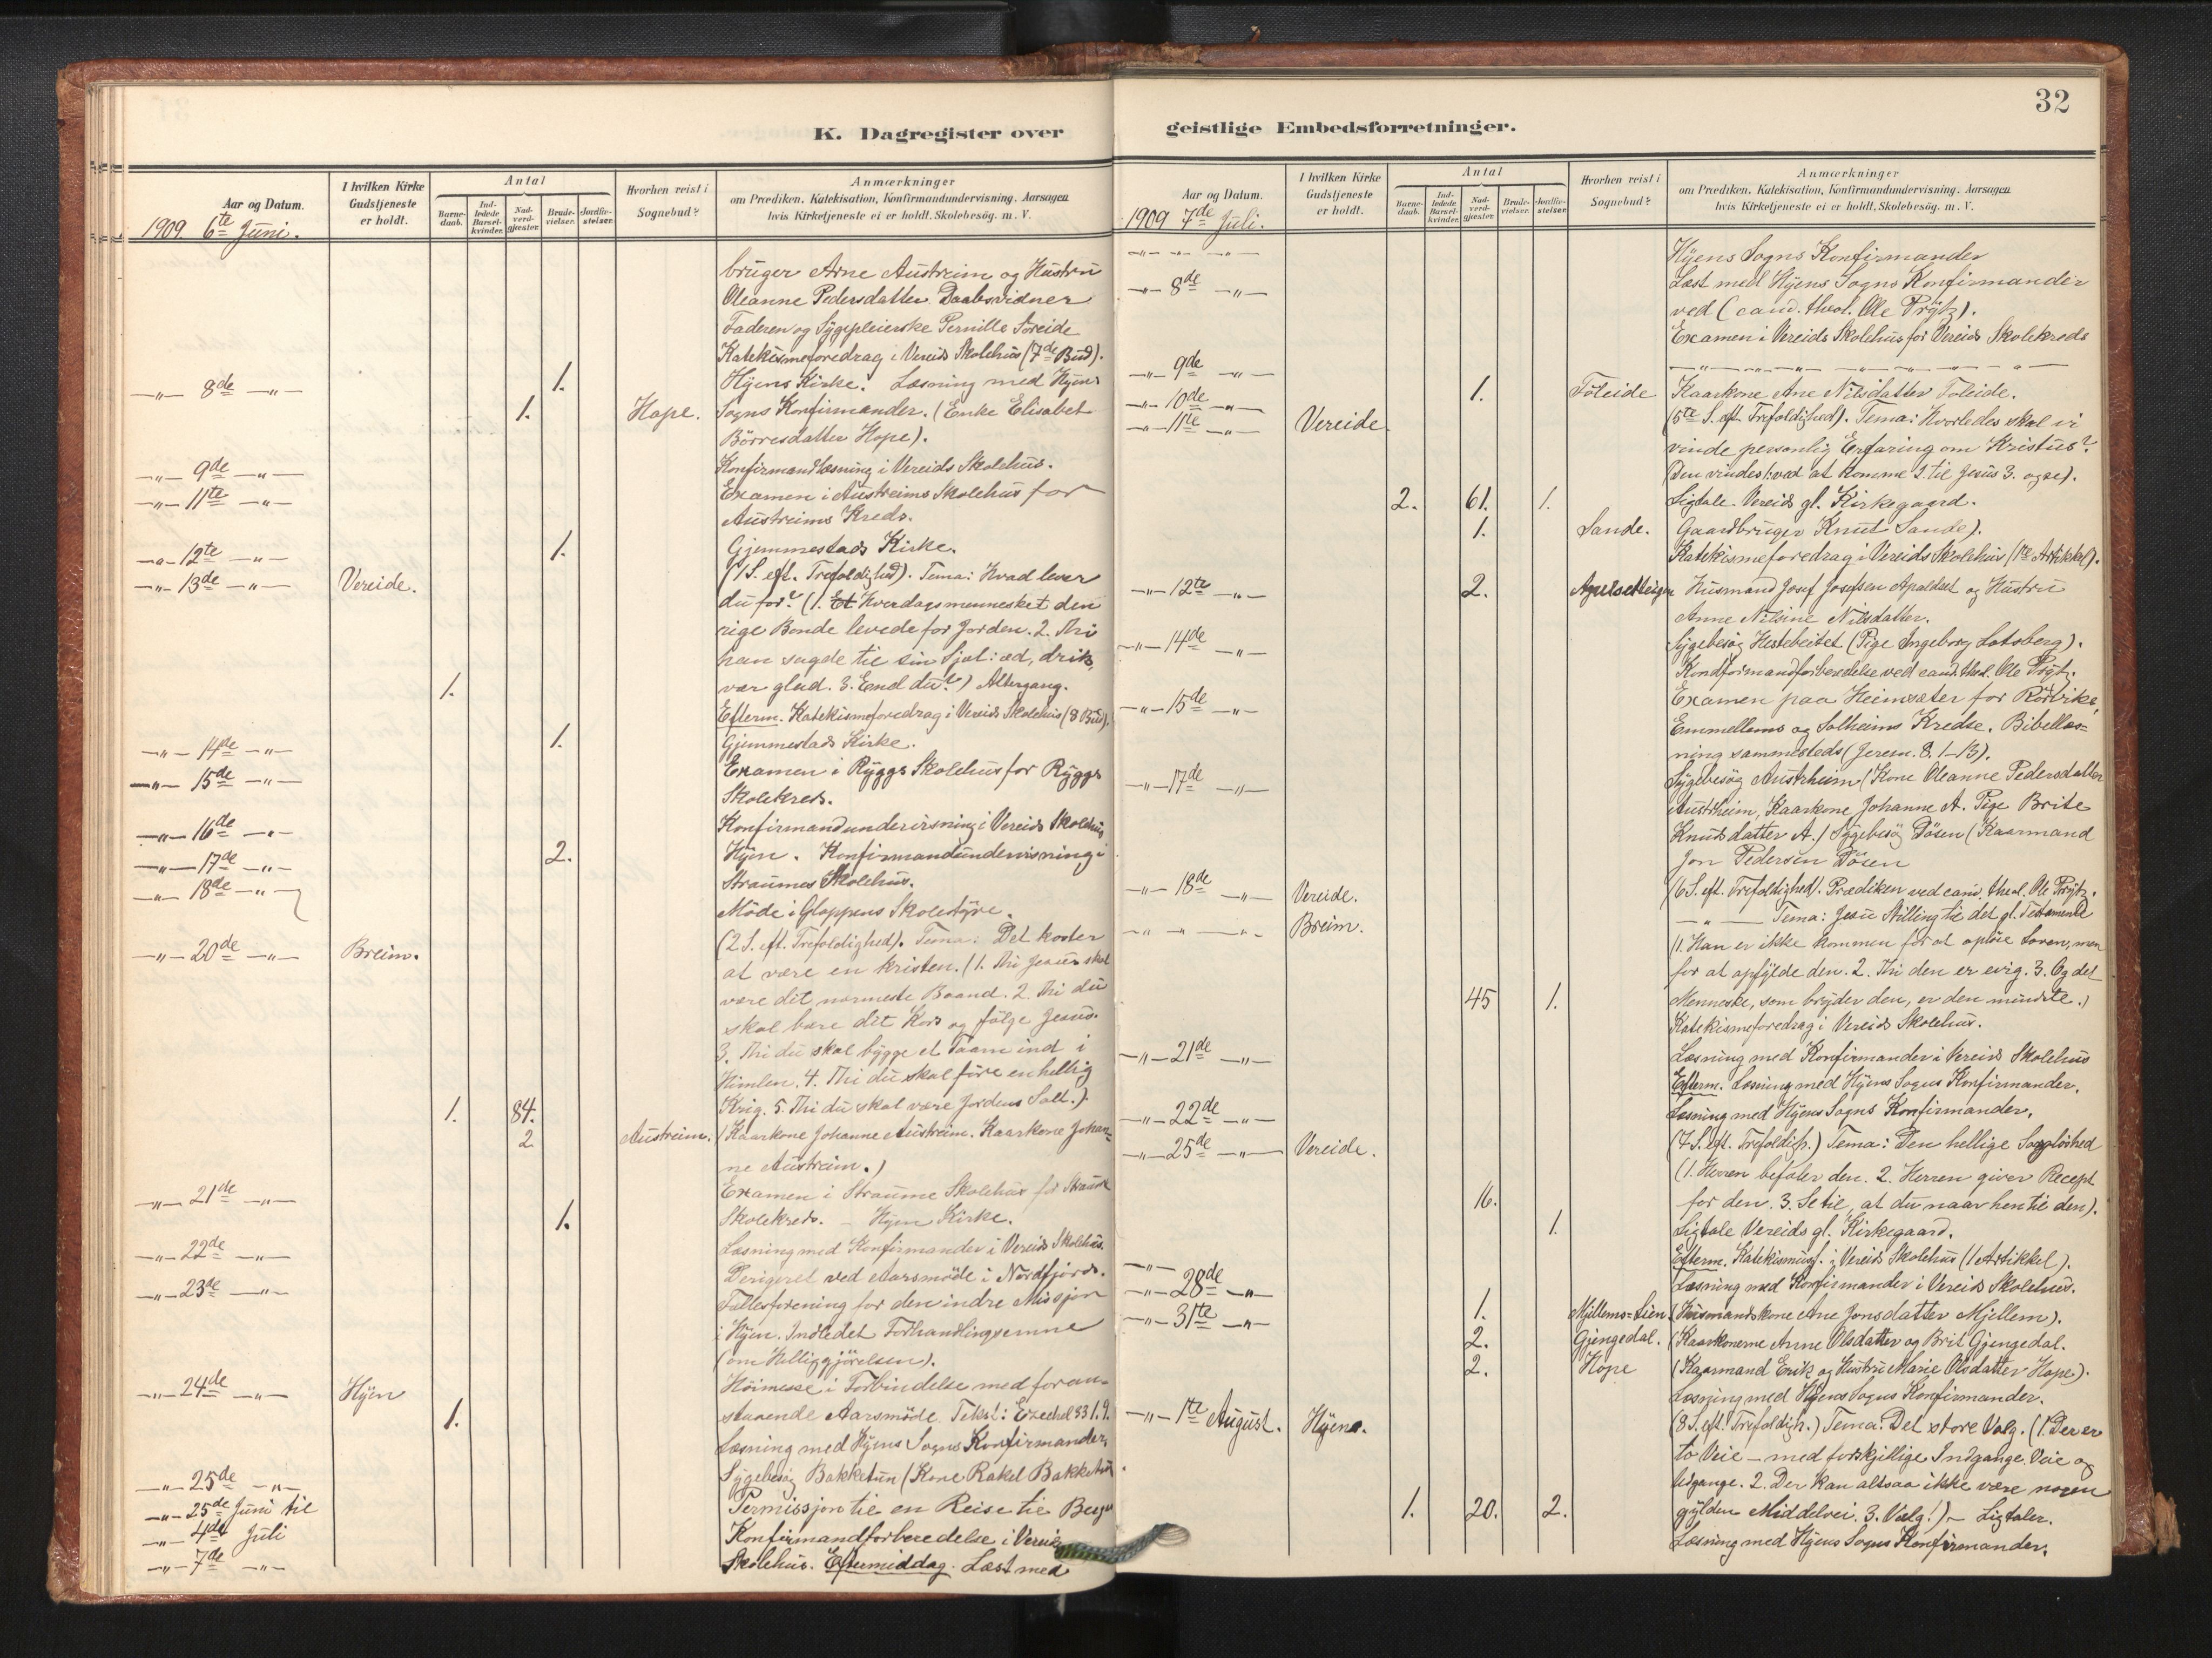 K. Dagregister over
Aar og Datum.
I hvilken Kirke Gudstjeneste er holdt.
Antal
Barnedaab.
Indledede Barselkvinder.
Nadverdgjæster.
Brudevielser.
Jordfæstelser.
Hvorhen reist i Sognebud?
Anmærkninger
om Prædiken. Katekisation, Konfirmandundervisning. Aarsagen
hvis Kirketjeneste ei er holdt. Skolebesög. m. V.
1909. 6te Juni.
bruger Arne Austreim og Hustru
Oleanne Pedersdatter. Daabsvidner
Faderen og Sygepleierske Pernille Söreide
Katekismeforedrag i Vereids Skolehus (7de Bud).
-"- 8de -"- 1. Hyens Kirke. Læsning med Hyens
1. Hope. Sogns Konfirmander. (Enke Elisabet
Börresdatter Hope).
-"- 9de -"- Konfirmandlæsning i Vereids Skolehus.
-"- 11te -"- Examen i Austreims Skolehus for
Austreims Kreds.
-"- 12te -"- 1. Gjemmestads Kirke.
-"- 13de -"- Vereide. (1 S. eft. Trefoldighed). Tema: Hvad lever
du for? (1. Et Hverdagsmennesket den
rige Bonde levede for Jorden. 2. Thi
han sagde til sin Sjæl: æd, drik,
1. vær glad. 3. End du?) Altergang.
Efterm. Katekismeforedrag i Vereids Skolehus (8 Bud).
-"- 14de -"- 1. Gjemmestads Kirke.
-"- 15de -"- Examen i Ryggs Skolehus for Ryggs
Skolekreds.
-"- 16de -"- Konfirmandundervisning i Vereids Skolehus
-"- 17de -"- 2. Hyen. Konfirmandundervisning i
-"- 18de -"- Straumes Skolehus.
Möde i Gloppens Skolestyre.
-"- 20de -"- Breim. (2 S. eft. Trefoldighed). Tema: Det koster
at være en kristen. (1. Thi Jesus skal
være dit nærmeste Baand. 2. Thi du
skal bære dit Kors og fölge Jesus.
3. Thi du skal bygge et Taarn ind i
Himlen. 4. Thi du skal före en hellig
1. 84. Krig. 5. Thi du skal være Jordens Salt.).
2 Austreim. (Kaarkone Johanne Austreim. Kaarkone Johan=
ne Austreim.)
-"- 21de -"- Examen i Straume Skolehus for Straume
1. Skolekreds. - Hyen Kirke.
-"- 22de -"- Læsning med Konfirmander i Vereids Skolehus.
-"- 23de -"- Derigeret ved Aarsmöde i Nordfjords.
Fællesforening for den indre Missjon
i Hyen. Indledet Forhandlingsemne
(om Helliggjörelsen).
-"- 24de -"- Hyen Höimesse i Forbindelse med foran=
1. staaende Aarsmöde. Tekst: Ezechel 33 1.9.
Læsning med Hyens Sogns Konfirmander.
-"- 25de -"- Sygebesög Bakketun (Kone Rakel Bakketun
-"- 25de Juni til Permissjon til en Reise til
-"- 4de Juli Konfirmandforberedelse i
-"- 7de -"- Skolehus. Eftermiddag. Læst med
geistlige Embedsforretninger.
32
Aar og Datum.
I hvilken Kirke Gudstjeneste er holdt.
Antal
Barnedaab.
Indledede Barselkvinder.
Nadverdgjæster.
Brudevielser.
Jordfæstelser.
Hvorhen reist i Sognebud?
Anmærkninger
om Prædiken. Katekisation, Konfirmandundervisning. Aarsagen
hvis Kirketjeneste ei er holdt. Skolebesög. m. V.
1909 7de Juli.
-"- -"- Hyens Sogns Konfirmander
-"- 8de -"- Læst med Hyens Sogns Konfirmander
ved (cand. theol. Ole Prytz).
Examen i Vereids Skolehus for Vereids Skolekreds
-"- 9de -"- -"- -"- -"- -"-
-"- 10de -"- 1. Töleide Kaarkone Ane Nilsdatter Töleide.
-"- 11te -"- Vereide (5te S. eft. Trefoldighed). Tema: Hvorledes skal vi
vinde personlig Erfaring om Kristus?
(Den vindes 1. ved at komme 2. til Jesus 3. og se).
2. 61. 1. Ligtale. Vereids gl. Kirkegaard.
1. Sande. Gaardbruger Knut Sande).
Katekismeforedrag i Vereids Skolehus (1te Artikkel).
-"- 12te -"- 2. Husmand Josef Josefsen Apaldset og Hustru
Anne Nilsine Nilsdatter.
-"- 14de -"- Sygebesög Hestebeitet (Pige Ingeborg Lotsberg).
Kondformandforberedelse ved cand. theol. Ole Prytz.
-"- 15de -"- Examen paa Heimsæter for Rörviks,
Emmellems og Solheims Kredse. Bibellæs=
ning sammesteds (Jerem. 8. 1-13).
-"- 17de -"- Sygebesög Austrheim (Kone Oleanne Pedersdatter
Austrheim, Kaarkone Johanne A. Pige Brite
Knutsdatter A.) Sygebesög Dösen (Kaarmand
Jon Pedersen Dösen
-"- 18de -"- Vereide. (6 S. eft. Trefoldighed). Prædiken ved cand. theol. Ole Prytz.
-"- -"- Breim. -"- Tema: Jesu Stilling til det gl. Testamente
(1. Han er ikke kommen for at oplöse Loven, men
for at opfylde den. 2. Thi den er evig. 3. Og det
45 1. Menneske, som bryder den, er den mindste.)
Katekismeforedrag i Vereids Skolehus.
-"- 21de -"- Læsning med Konfirmander i Vereids Skolehus
Efterm. Læsning med Hyens Sogns Konfirmander.
-"- 22de -"- Læsning med Hyens Sogns Konfirmander.
-"- 25de -"- Vereide. (7 S. eft. Trefoldigh.) Tema: Den hellige Sorglöshed
(1. Herren befaler den. 2. Herren giver Recept
16. for den. 3. Se til, at du naar hen til den).
1. Ligtale Vereids gl. Kirkegaard.
-"- Efterm. Katekismusf. i Vereids Skolehus (1 Artikkel).
-"- 28de -"- Læsning med Konfirmander i Vereids Skolehus.
-"- 31te -"- 1. Mjellems-Lien (Husmandskone Ane Jonsdatter Mjellem).
2. Gjengedal. (Kaarkonerne Anne Olsdatter og Brit Gjengedal.
2. Hope (Kaarmand Erik og Hustru Marie Olsdatter Hope).
Læsning med Hyens Sogns Konfirmander.
-"- 1te August. Hyens. (8 S. eft. Trefoldigh.) Tema: Det store Valg. (1. Der er
to Veie - med forskjellige Indgange Veie og
Udgange. 2. Der kan altsaa ikke være nogen
1. 20. 2. gylden Middelvei. 3. Vælg!) - Ligtaler.
Læsning med Hyens Sogns Konfirmander.